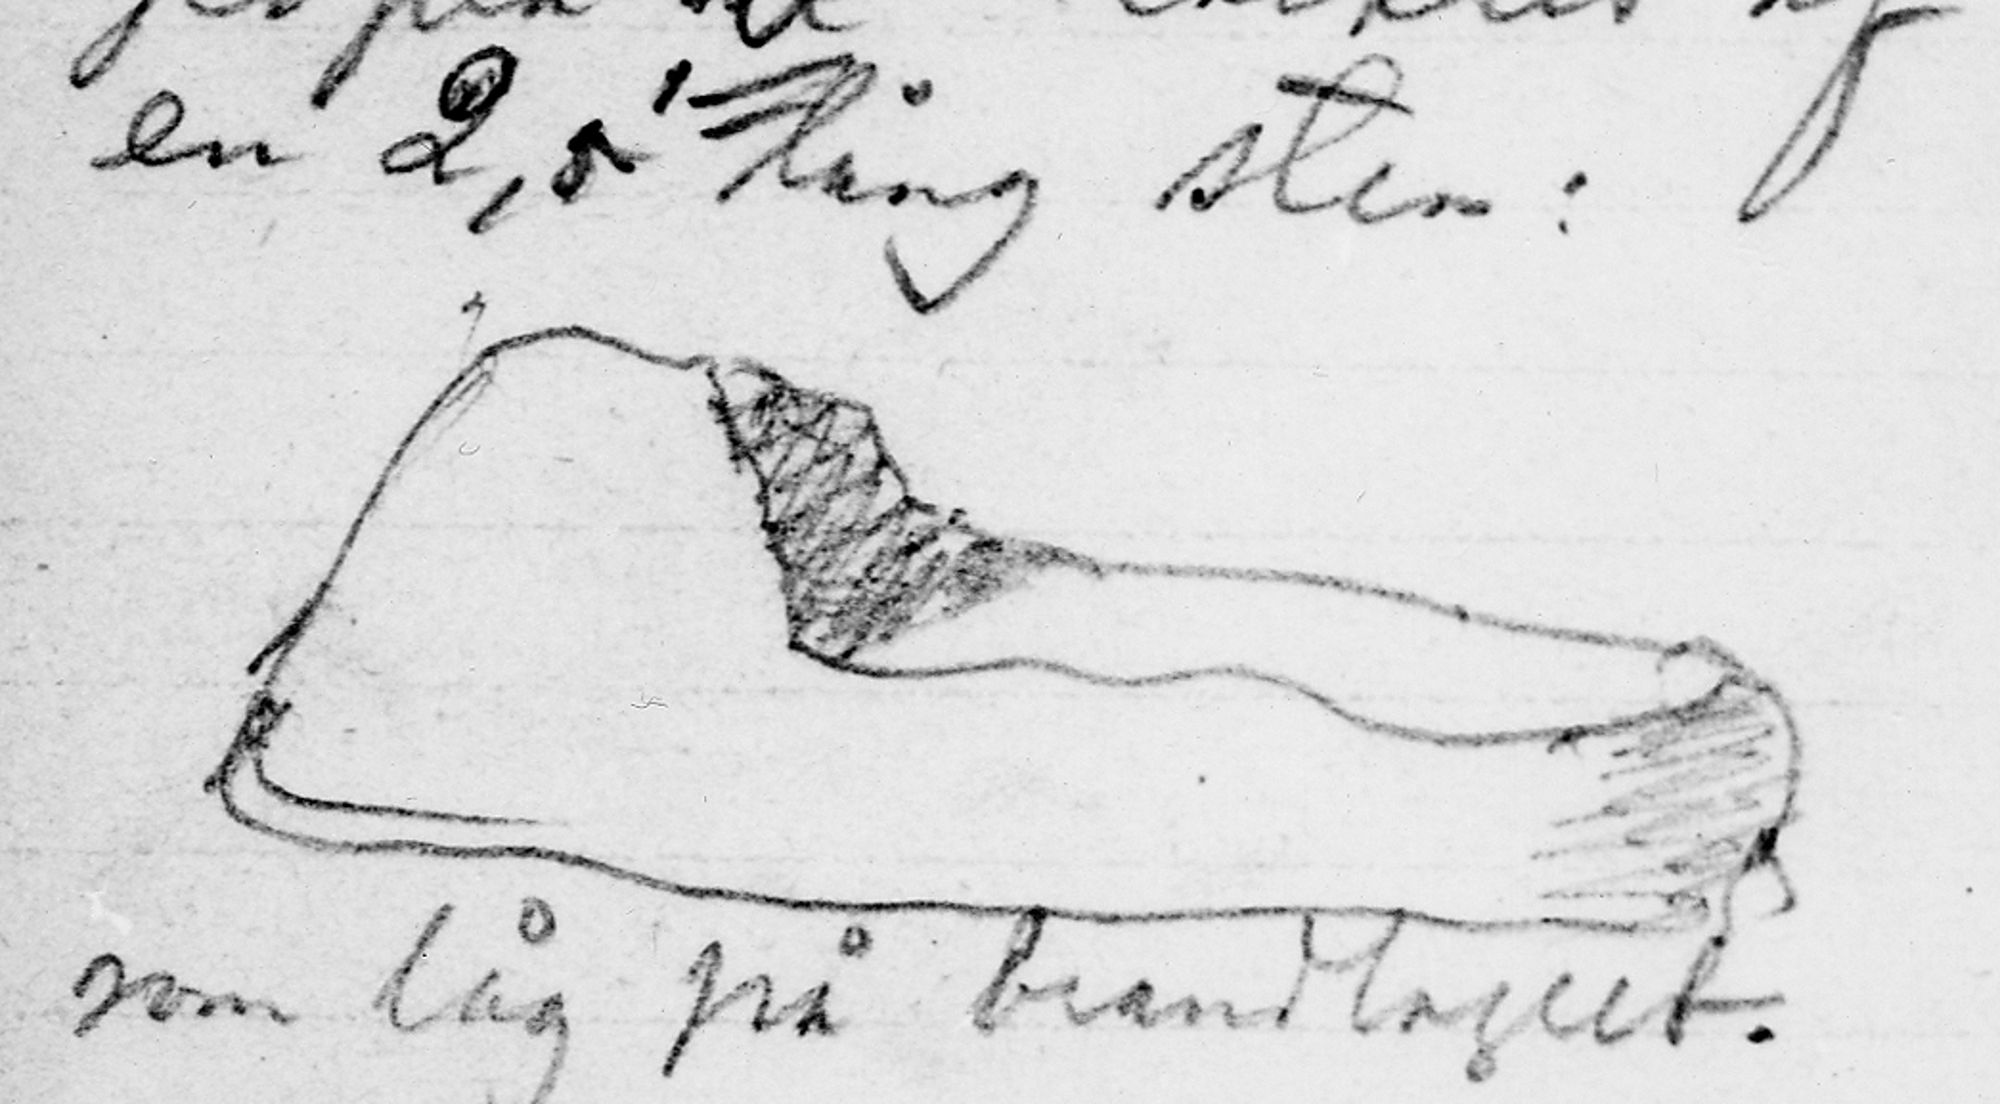 af
en 2,5' lång sten:
som låg på brandlagret.